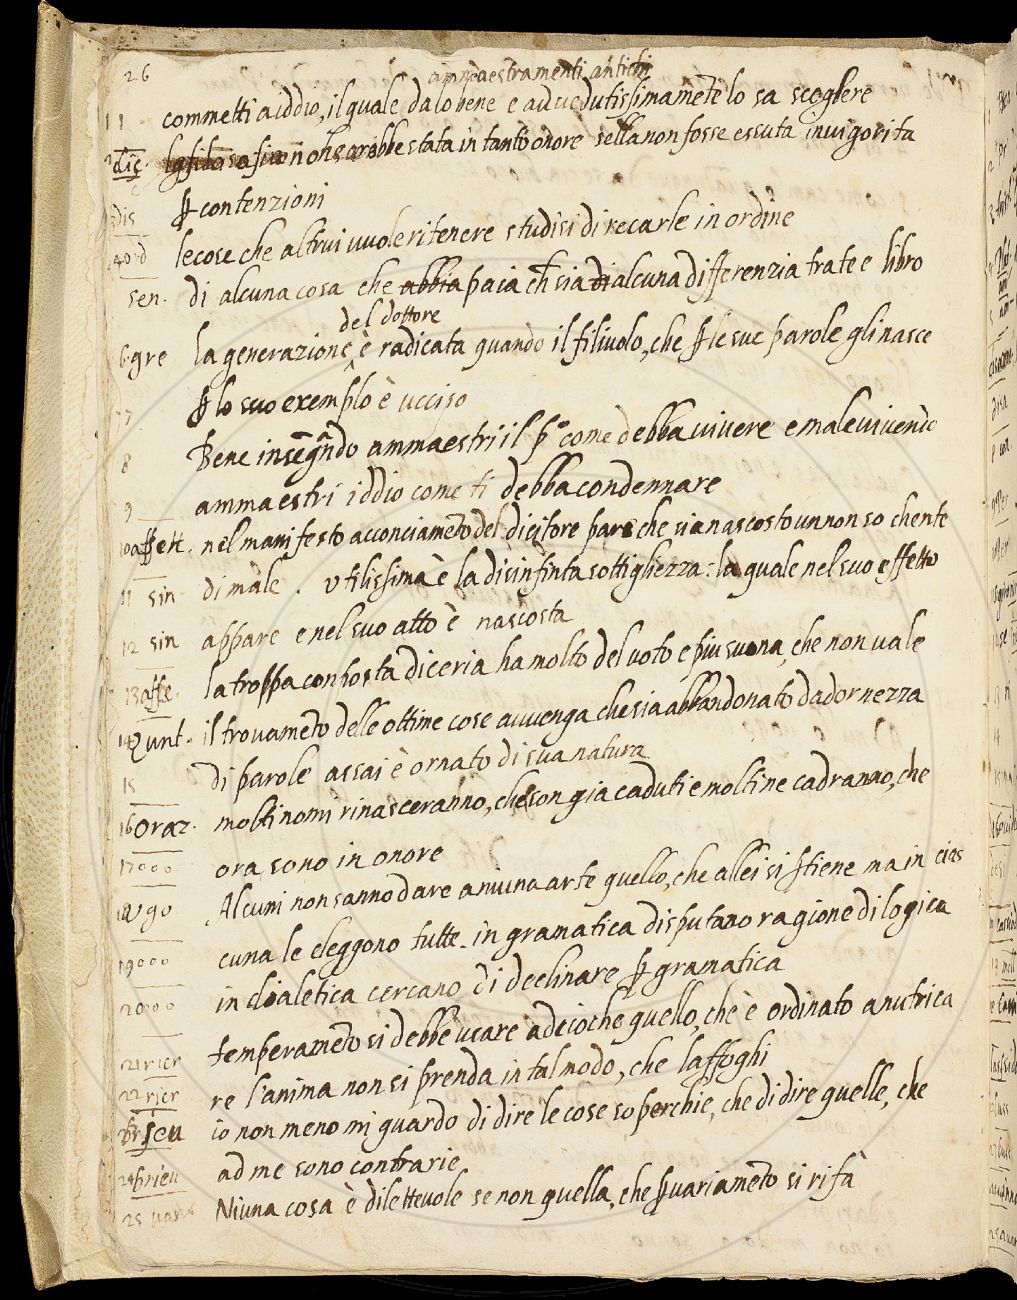 26
ammaestramenti antichi
1 commetti a iddio, il quale da lo bene e advedutissimamēte lo sa scegliere
dis. la filosofia non sarebbe stata in tanto onore sella non fosse essuta invigorita
dis ꝑ contenzioni
4 ord le cose che altrui vuole ritenere studisi di recarle in ordine
sen. di alcuna cosa che abbia paia ch̄ sia di alcuna differenzia tra te e libro
del dottore
6 gre la generazione è radicata quando il filiuolo, che ꝑ le sue parole gli nasce
7 ꝑ lo suo exemplo è ucciso
8 Bene insegnādo ammaestri il pº come debba vivere e male vivendo
9 ammaestri iddio come ti debba condennare
10 affett. nel manifesto acconciamēto del dicitore pare che sia nascosto un non so chente
11 sin di male. utilissima è la disinfinta sottighezza: la quale nel suo effetto
12 sin appare e nel suo atto è nascosta
13 affe. la troppa composta diceria ha molto del voto e piu suona, che non vale
14 Qunt. il trovamēto delle ottime cose avvenga che sia abbandonato dadornezza
15 di parole assai è ornato di sua natura
16 Oraz. molti nomi rinasceranno, che son gia caduti e molti ne cadranno, che
17 ooo ora sono in onore
18 Ugo Alcuni non sanno dare a niuna arte quello, che allei si stiene ma in cias
19 ooo cuna le eleggono tutte. in gramatica disputano ragione di logica
20 ooo in dialetica cercano di declinare ꝑ gramatica
21 ricr temperamēto si debbe usare adcioche quello, che è ordinato a nutrica
22 ricr re l'anima non si prenda in tal modo, che laffoghi
23 sen io non meno mi guardo di dire le cose soperchie, che di dire quelle, che
24 brieu ad me sono contrarie
25 vari Niuna cosa è dilettevole se non quella, che ꝑ variamēto si rifà